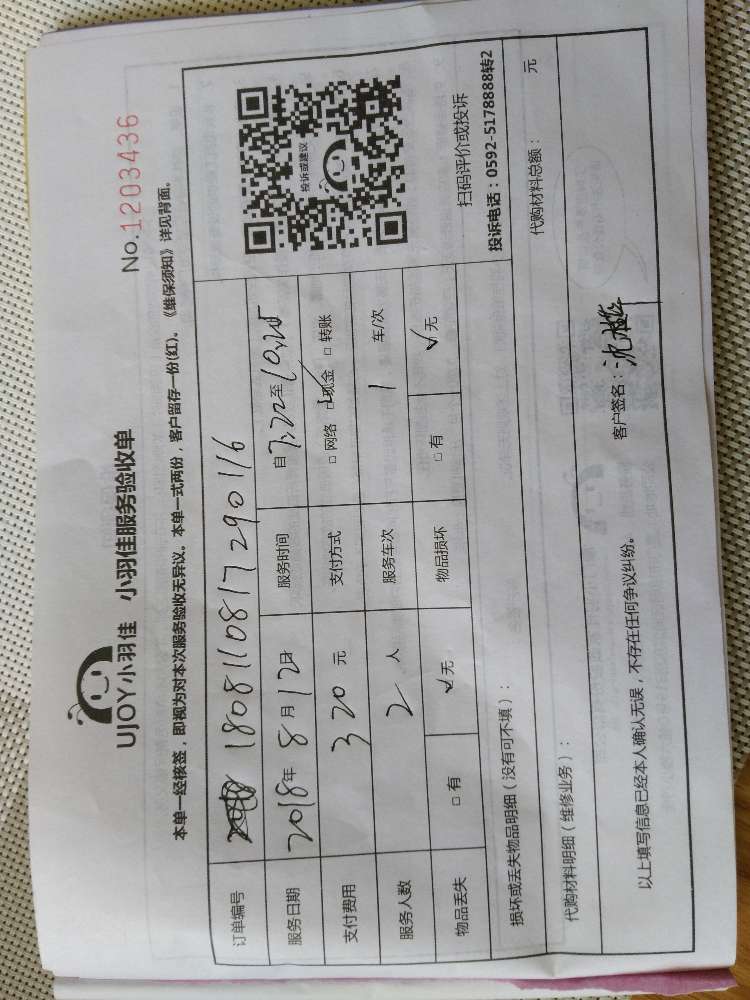 UJOY小羽佳 小羽佳服务验收单 No.1203436
本单一经核签，即视为对本次服务验收无异议。本单一式两份，客户留存一份(红)。《维保须知》详见背面。
订单编号 1808110817290116
服务日期 2018年 8月12日 服务时间 自7:22至10:25
支付费用 320元 支付方式 □网络 ☑现金 □转账
服务人数 2人 服务车次 1 车/次
物品丢失 □有 ☑无 物品损坏 □有 ☑无
投诉或建议
扫码评价或投诉
投诉电话：0592-5178888转2
损坏或丢失物品明细（没有可不填）：
代购材料明细（维修业务）： 代购材料总额： 元
以上填写信息已经本人确认无误，不存在任何争议纠纷。 客户签名：沈